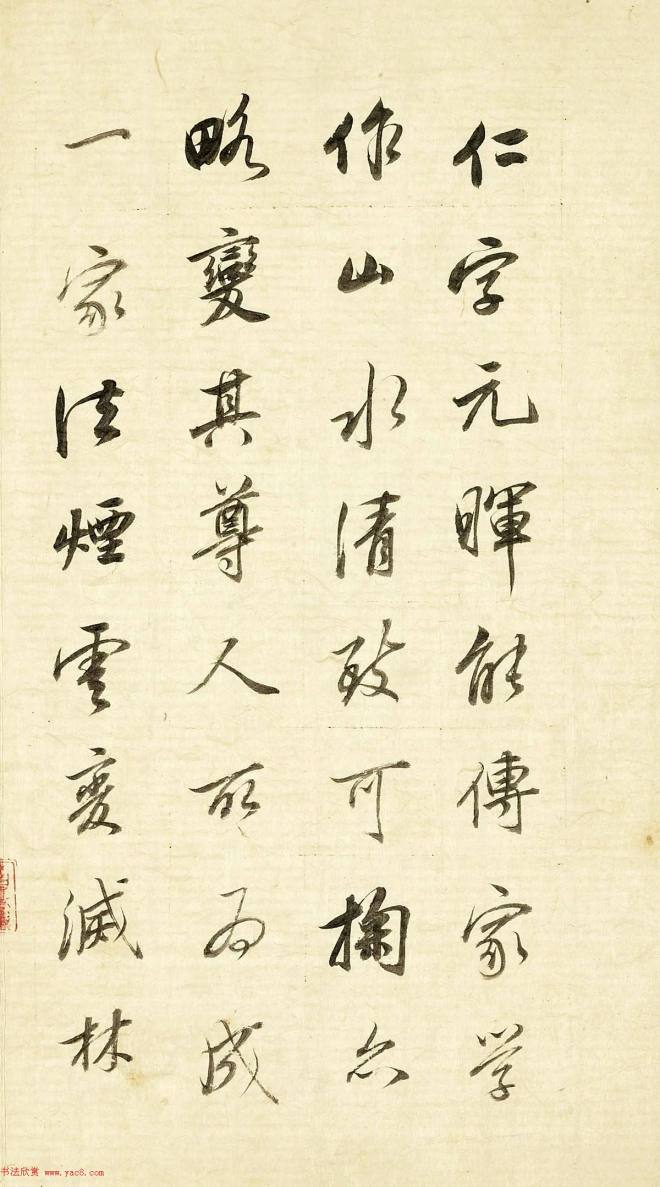 仁字元暉能傳家學
作山水清致可掬亦
略變其尊人所為成
一家法煙雲變滅林
书法欣赏 www.yac8.com